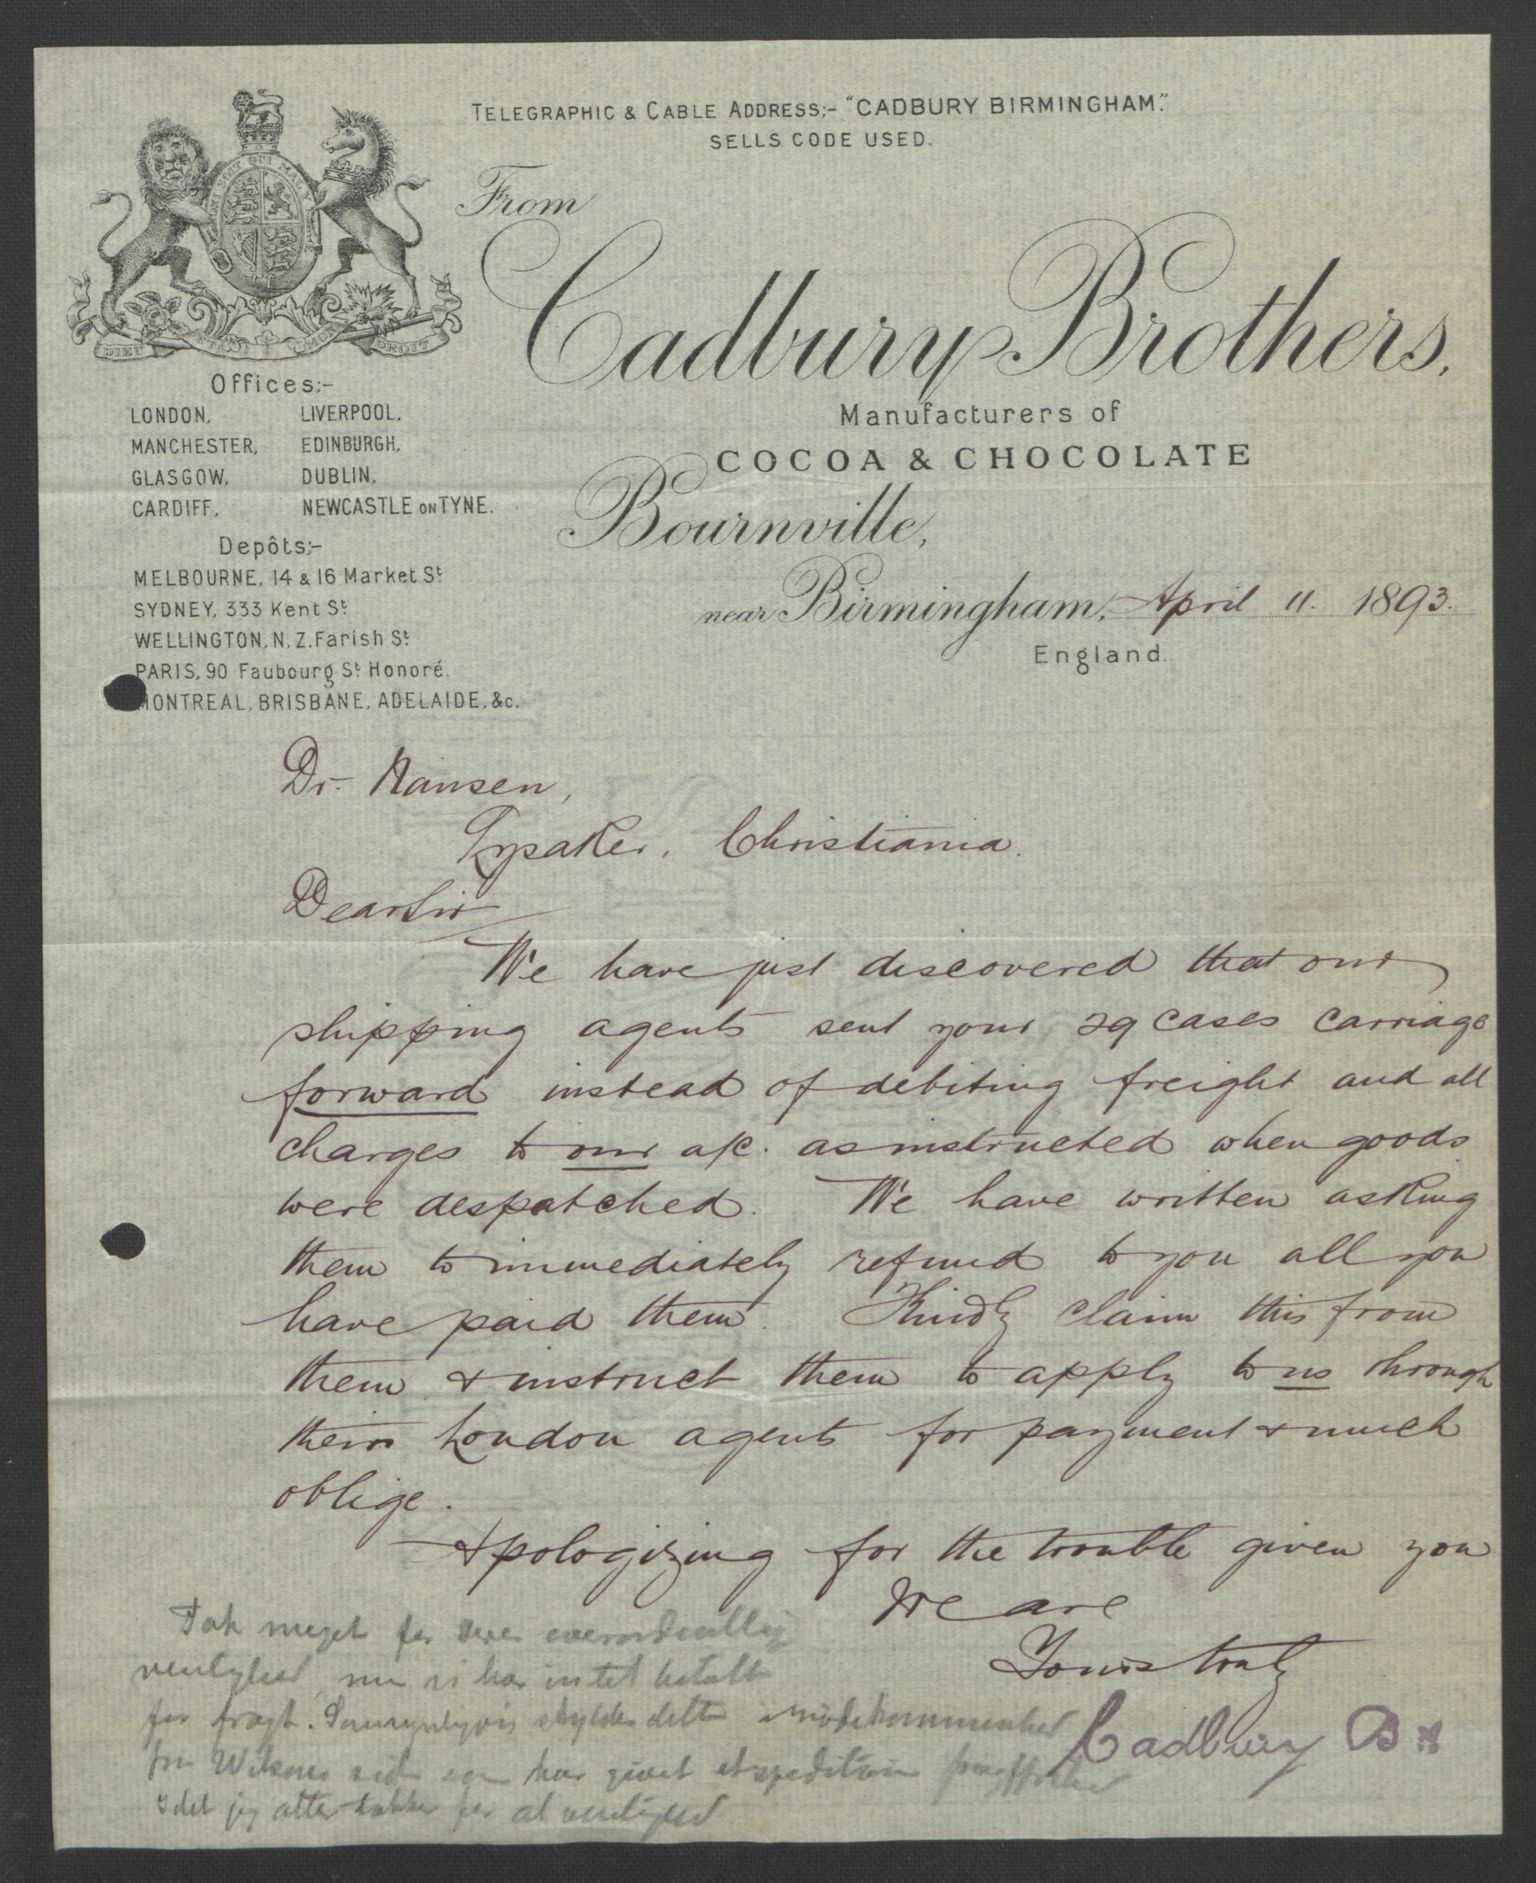 TELEGRAPHIC & CABLE ADDRESS:- "CADBURY BIRMINGHAM."
SELLS CODE USED.
From
Cadbury Brothers,
Manufacturers of
COCOA & CHOCOLATE
Bournville,
near Birmingham, April 11. 1893.
England.
HONI SOIT QUI MAL Y
DIEU ET MON DROIT
Offices:-
LONDON, LIVERPOOL,
MANCHESTER, EDINBURGH,
GLASGOW, DUBLIN,
CARDIFF, NEWCASTLE ON TYNE.
Depôts:-
MELBOURNE, 14 & 16 Market St
SYDNEY, 333 Kent St
WELLINGTON, N.Z. Farish St
PARIS, 90 Faubourg St Honoré.
MONTREAL, BRISBANE, ADELAIDE, &c.
Dr. Nansen,
Lysaker, Christiania.
Dear Sir
We have just discovered that our
shipping agents sent your 29 cases carriage
forward instead of debiting freight and all
charges to our a/c. as instructed when goods
were despatched. We have written asking
them to immediately refund to you all you
have paid them. Kindly claim this from
them & instruct them to apply to us through
their London agents for payment & much
oblige.
Apologizing for the trouble given you
We are
Yours truly
Cadbury Bros
Tak meget for deres overordentlig
venlighed, men vi har intet betalt
for fragt. skyldes dette imødekommenhed
fra Wilsons side som har givet
idet jeg atter takker for al venlighed